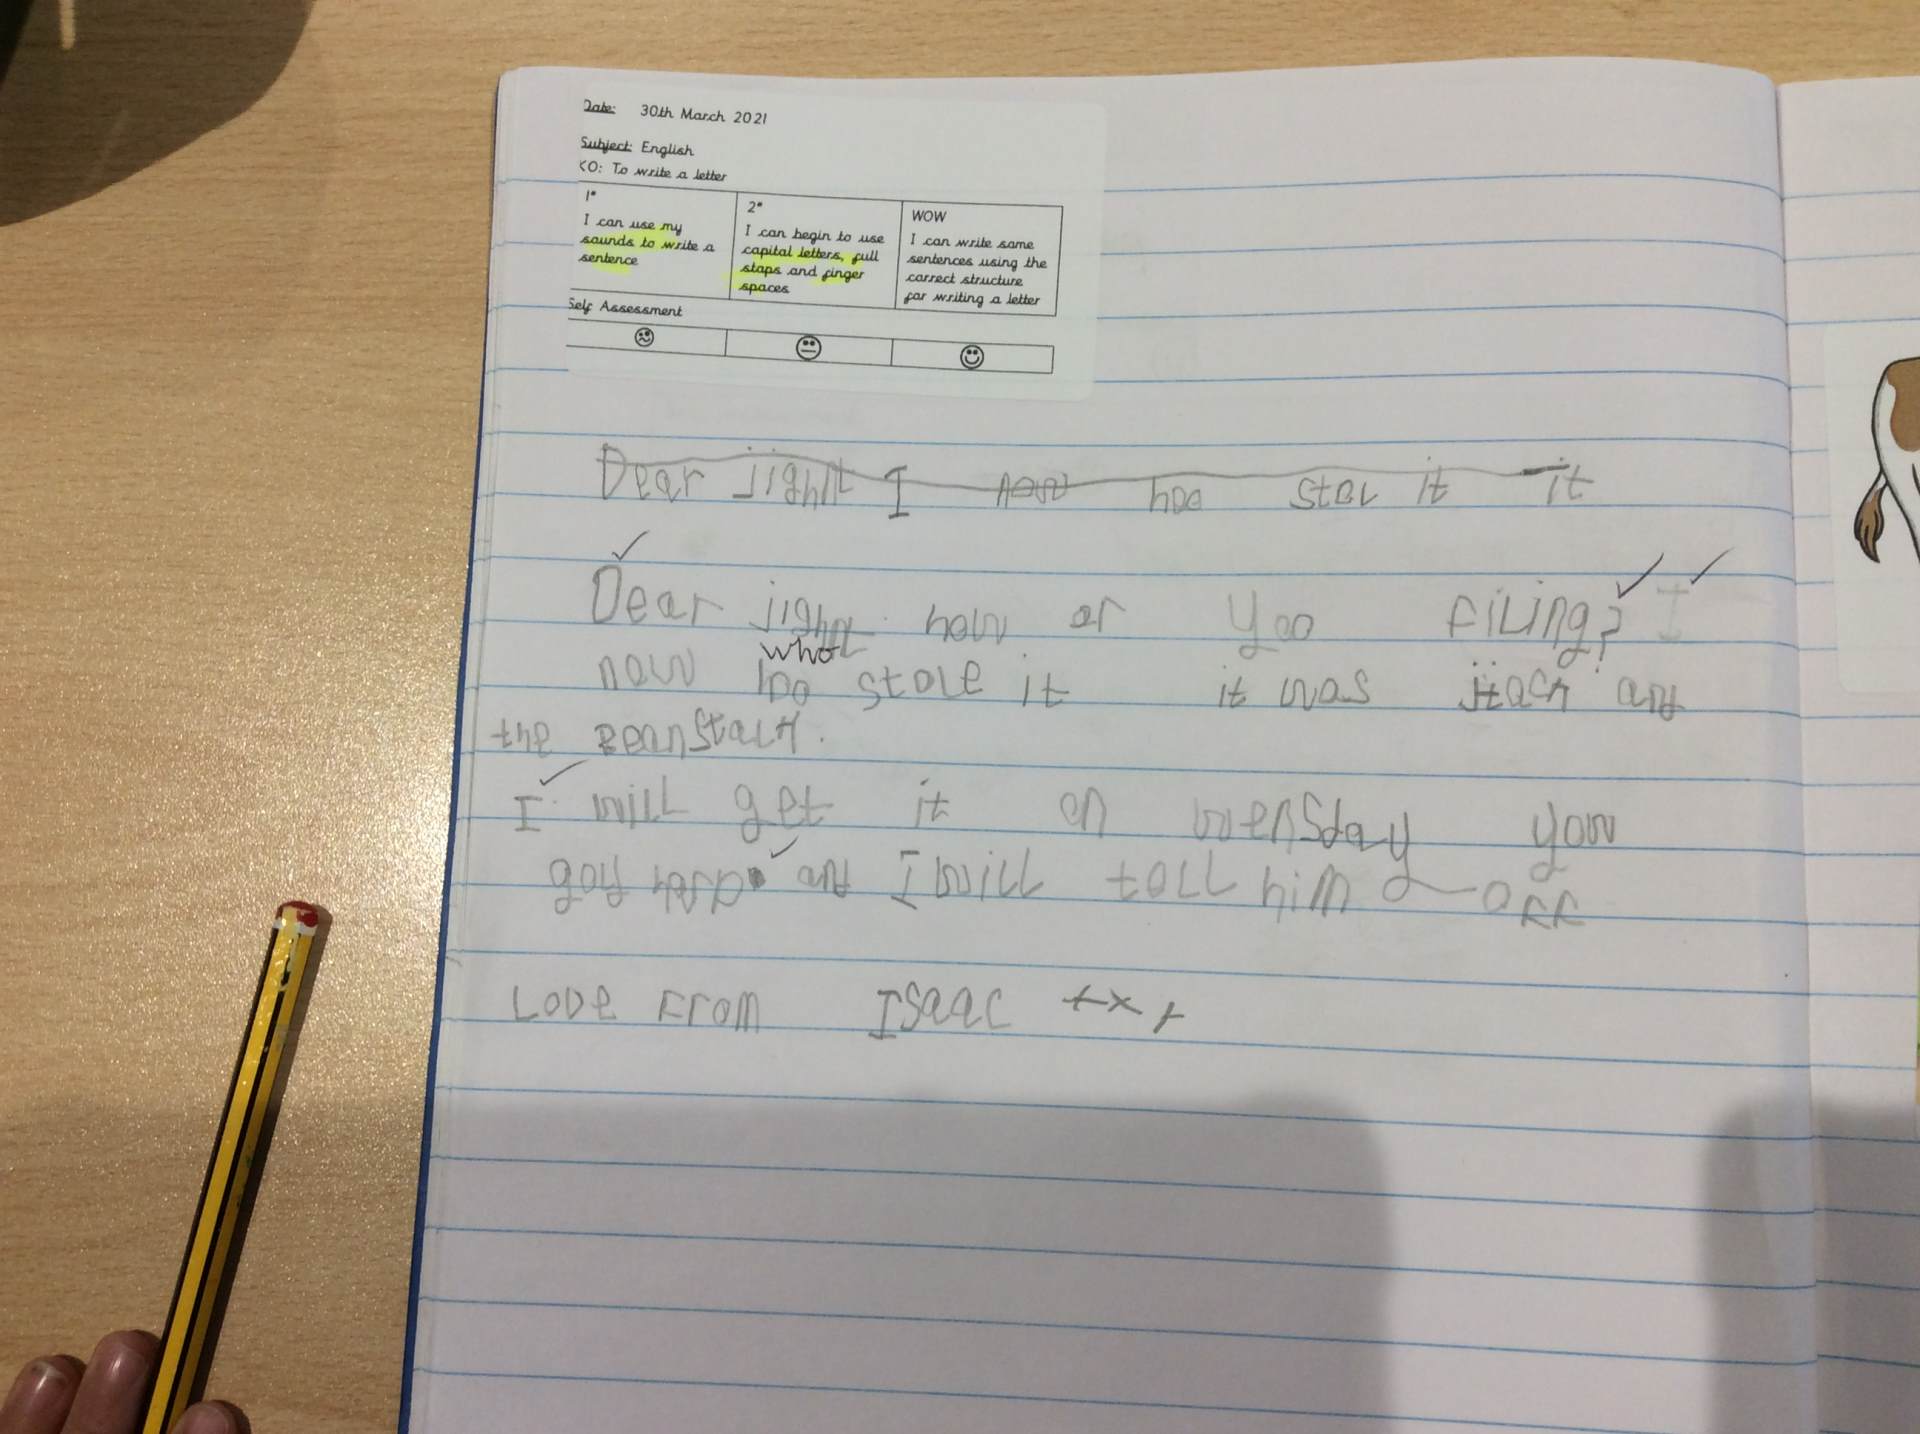 Date: 30th March 2021
Subject: English
LO: To write a letter
1*
I can use my
sounds to write a
sentence
2*
I can begin to use
capital letters, full
stops and finger
spaces
WOW
I can write some
sentences using the
correct structure
for writing a letter
Self Assessment
Dear I now hoo stol it it
Dear how or yoo filing? I
who
now hoo stole it it was Jack and
the Beanstalk.
I will get it on wensday yow
goy and I will tell him off
Love From Isaac xxx